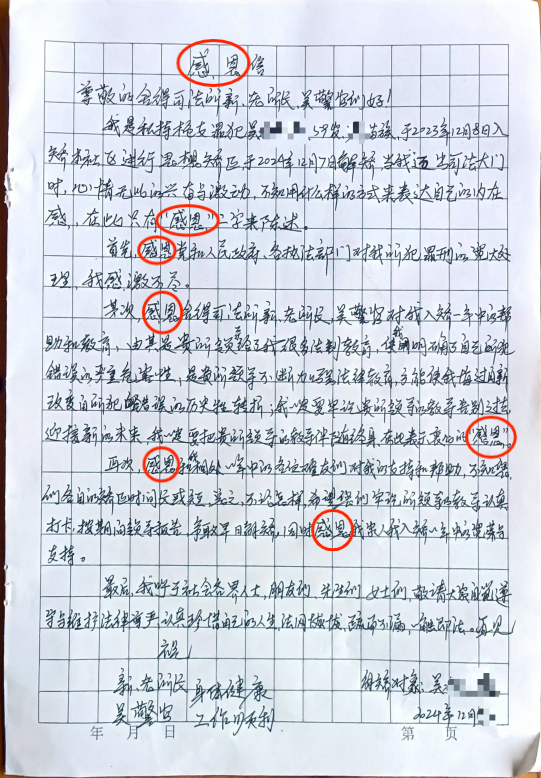 感恩信
尊敬的舍得司法所新、老所长、吴警官们好!
我是私持枪支罪犯吴 59岁, 苗族,于2023年12月8日入
矫本社区进行思想矫正,于2024年12月7日解矫,当我迈出司法大门
时,心情无比的兴奋与激动,不知用什么样的方式来表达自己的内在
感,在此只有“感恩”二字来陈述。
首先,感恩党和人民政府、各执法部门对我所犯罪刑的宽大处
理,我感激不尽。
其次,感恩舍得司法所新、老所长,吴警官对我入矫一年中的帮
助和教育,由其是贵所领导给了我很多法制教育,使我明确了自己所犯
错误的严重危害性,是贵所领导不断加强法律教育,才能使我悔过自新
改变自所犯错误的历史性转折,我一定要牢记贵所领导的教导告别过去,
迎接新的未来,我一定要把贵所领导的教导伴随终身,在此表示衷心的“感恩”。
再次,感恩和我相处一年中的各位难友们对我的支持和帮助,不知
们各自的矫正时间长或短,总之,不论怎样,希望你们牢记所领导的教导认真
打卡,按期向领导报告,争取早日解矫,同时感恩我家人我入矫一年中的 与
支持。
最后,我呼于社会各界人士,朋友们,先生们,女士们,敬请大家自觉遵
守与维护法律尊严,认真珍惜自己的人生,法网恢恢,疏而不漏,触即法。
祝
新、老所长 身体健康
吴警官 工作顺利
矫对象:吴
2024年12月
年 月 日 第 页